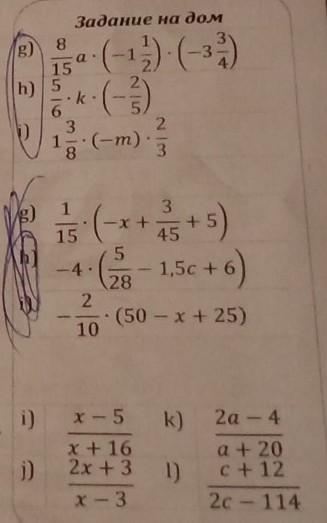 Задание на дом
g) 8/15 a · (−1 1/2) · (−3 3/4)
h) 5/6 · k · (−2/5)
i) 1 3/8 · (−m) · 2/3
g) 1/15 · (−x + 3/45 + 5)
h) −4 · (5/28 − 1,5c + 6)
i) −2/10 · (50 − x + 25)
i) (x − 5)/(x + 16) k) (2a − 4)/(a + 20)
j) (2x + 3)/(x − 3) l) (c + 12)/(2c − 114)